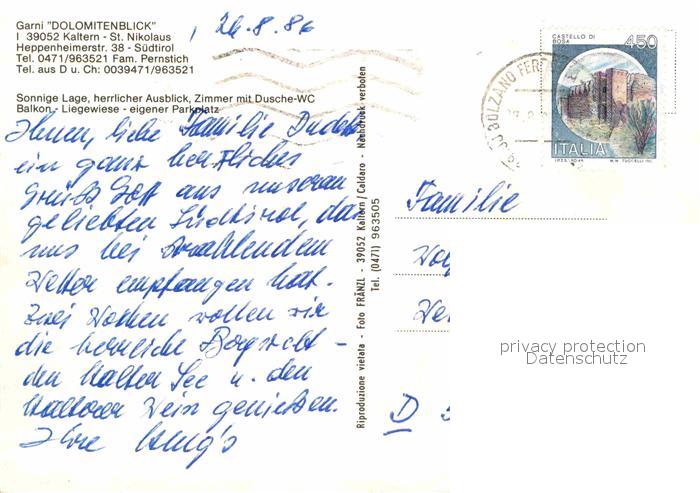 Garni "DOLOMITENBLICK"
I 39052 Kaltern - St. Nikolaus
Heppenheimerstr. 38 - Südtirol
Tel. 0471/963521 Fam. Pernstich
Tel. aus D u. Ch: 0039471/963521
Sonnige Lage, herrlicher Ausblick, Zimmer mit Dusche-WC
Balkon - Liegewiese - eigener Parkplatz
26.8.86
Ihnen, liebe Familie
ein ganz herzliches
Grüß Gott aus unserem
geliebten Südtirol, das
uns bei strahlendem
Wetter empfangen hat.
Zwei Wochen wollen wir
die herrliche Bergwelt -
den Kalterer See u. den
Kalterer Wein genießen.
Ihre
Riproduzione vietata - Foto FRÄNZL - 39052 Kaltern/Caldaro - Nachdruck verboten
Tel. (0471) 963505
CASTELLO DI
BOSA
450
ITALIA
BOLZANO
Familie
D
privacy protection
Datenschutz